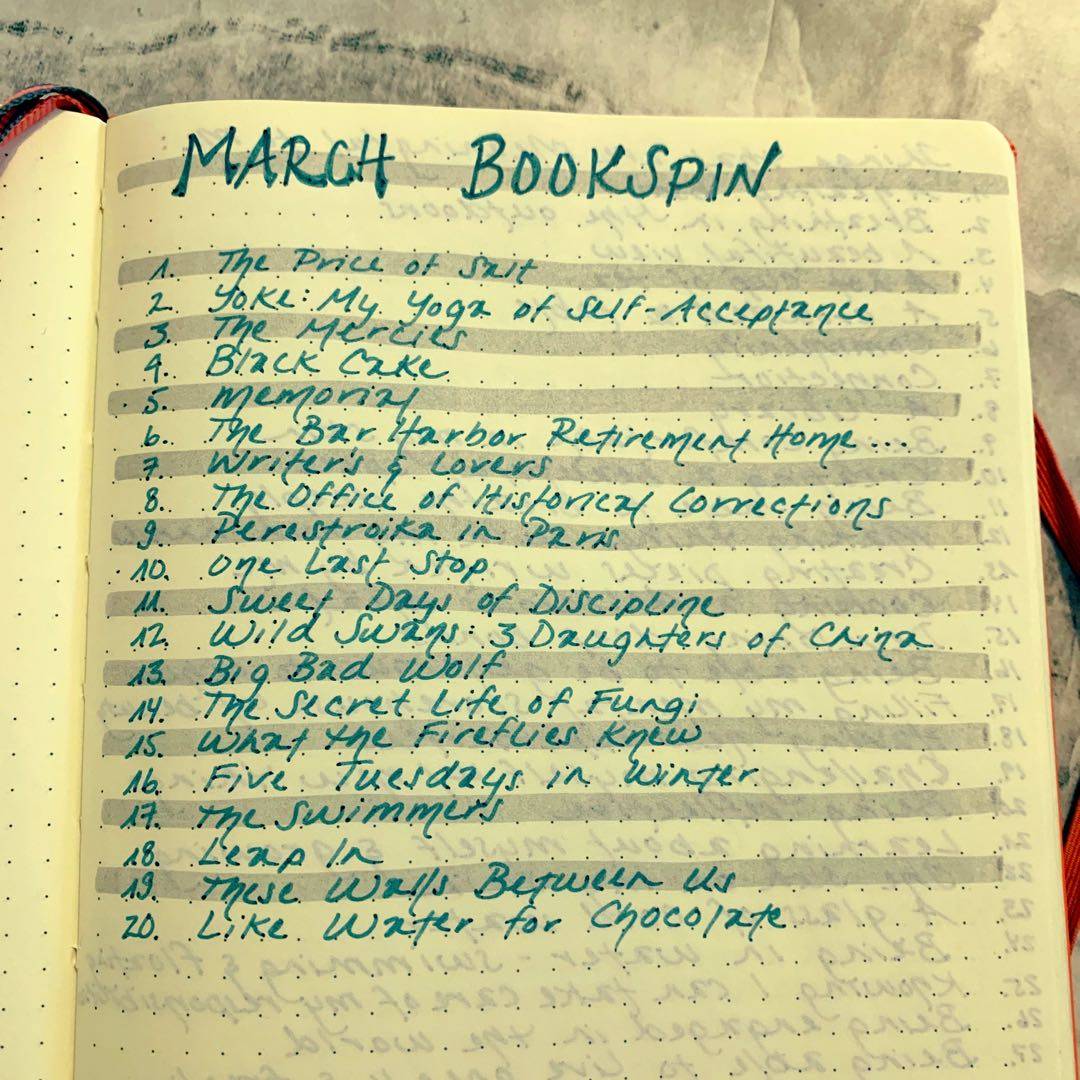 MARCH BOOKSPIN
1. The Price of Salt
2. Yoke: My Yoga of Self-Acceptance
3. The Mercies
4. Black Cake
5. Memorial
6. The Bar Harbor Retirement Home...
7. Writers & Lovers
8. The Office of Historical Corrections
9. Perestroika in Paris
10. One Last Stop
11. Sweet Days of Discipline
12. Wild Swans: 3 Daughters of China
13. Big Bad Wolf
14. The Secret Life of Fungi
15. What the Fireflies Knew
16. Five Tuesdays in Winter
17. The Swimmers
18. Leap In
19. These Walls Between Us
20. Like Water for Chocolate